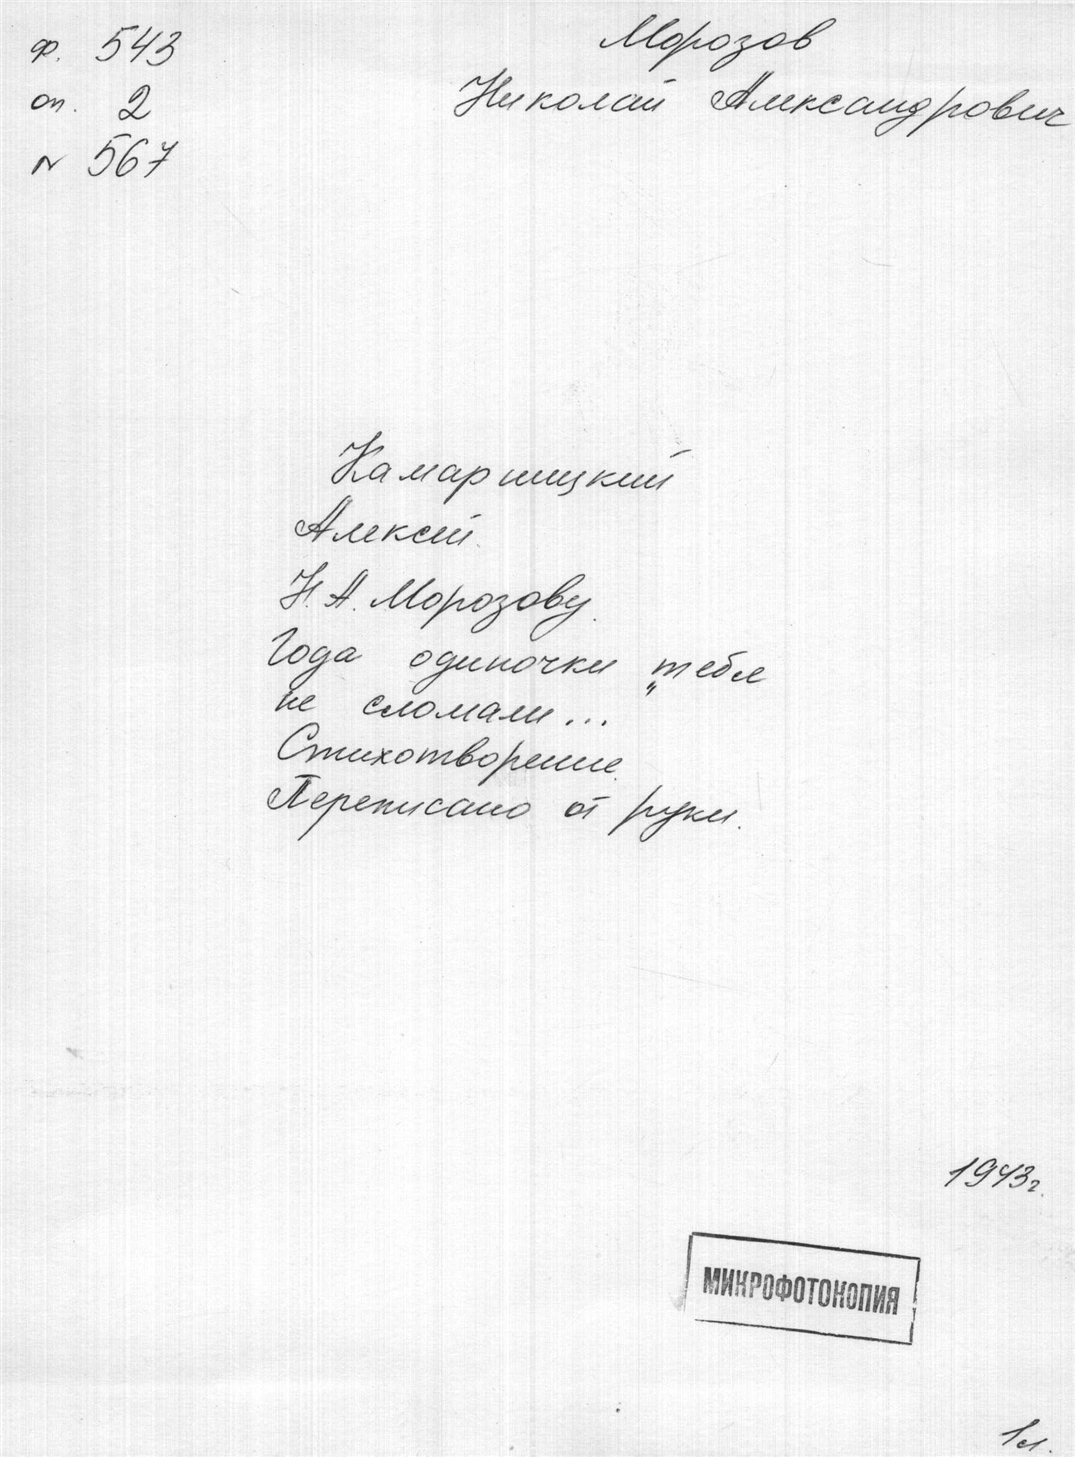 ф. 543
оп. 2
N 567
Морозов
Николай Александрович
Камарницкий
Алексей.
Н. А. Морозову.
Года одиночки „тебя
не сломали...
Стихотворение.
Переписано от руки.
1943г.
МИКРОФОТОКОПИЯ
1л.